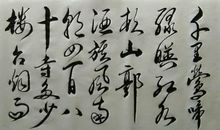 千里莺啼
绿映红水
村山郭
酒旗风南
朝四百八
十寺多少
楼台烟雨